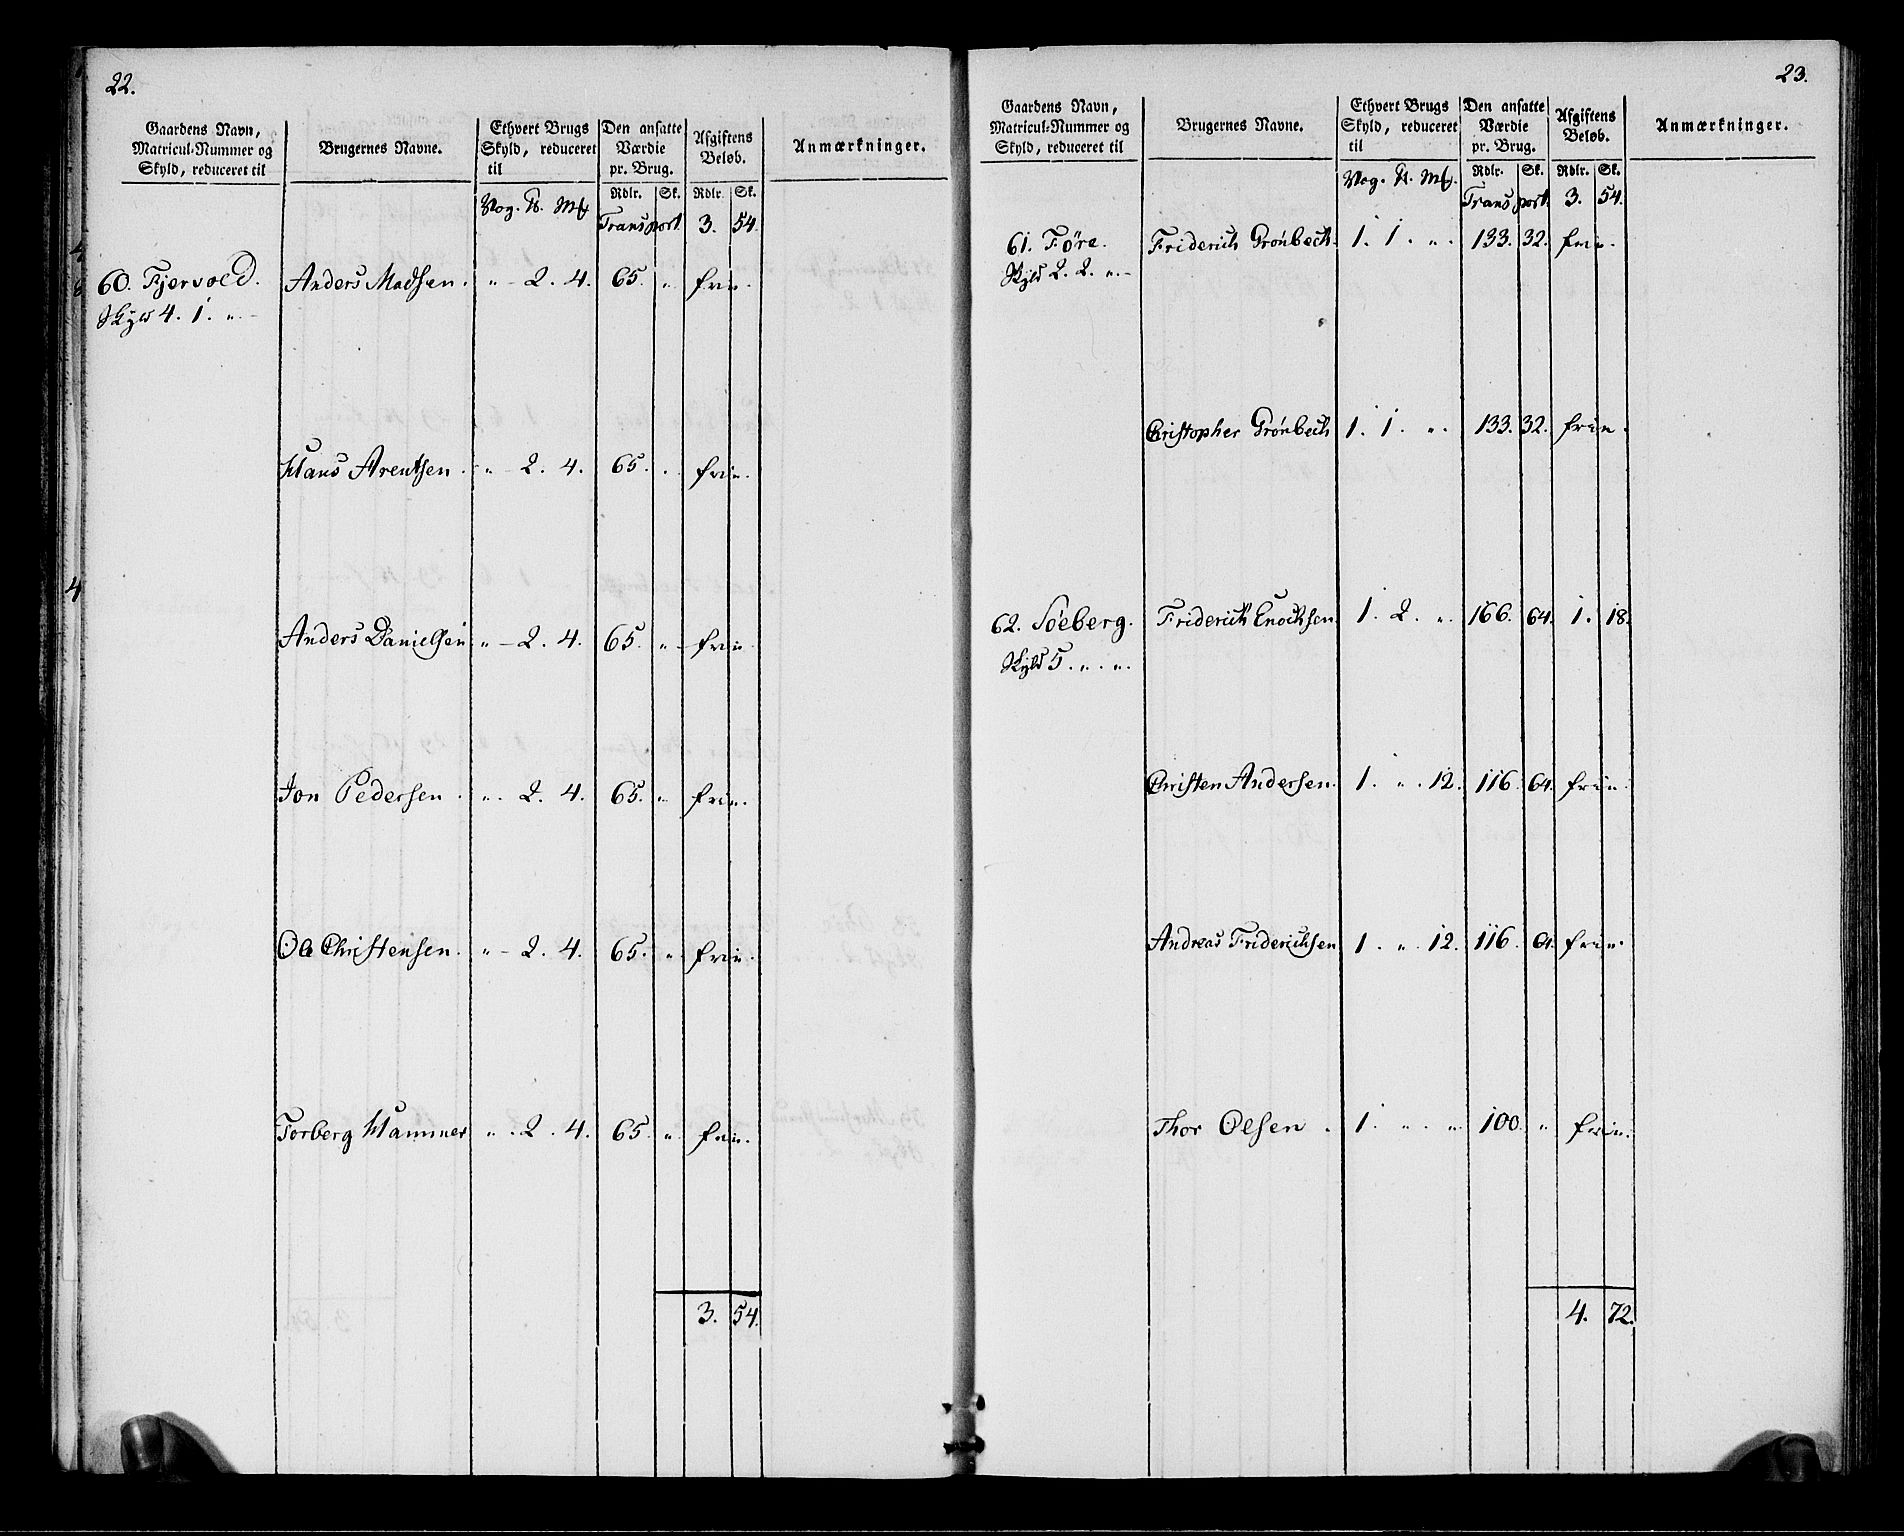 22.
Gaardens Navn, Matricul-Nummer og Skyld, reduceret til | Brugernes Navne. | Ethvert Brugs Skyld, reduceret til | Den ansatte Værdie pr. Brug. | Afgiftens Beløb. | Anmærkninger.
Vog. ℔. Mk | Rdlr. | Sk. | Rdlr. | Sk.
Transport | 3. | 54.
60. Fjervold. | Anders Madsen. | " - 2. 4. | 65. | " | frie.
Skyld 4. 1. "
Hans Arentsen. | " - 2. 4. | 65. | " | frie.
Anders Danielsen | " - 2. 4. | 65. | " | frie.
Jon Pedersen. | " . 2. 4. | 65. | " | frie.
Ole Christensen. | " - 2. 4. | 65. | " | frie.
Torberg Hammer | " . 2. 4. | 65. | " | frie.
3. | 54.
23.
Gaardens Navn, Matricul-Nummer og Skyld, reduceret til | Brugernes Navne. | Ethvert Brugs Skyld, reduceret til | Den ansatte Værdie pr. Brug. | Afgiftens Beløb. | Anmærkninger.
Vog. ℔. Mk. | Rdlr. | Sk. | Rdlr. | Sk.
Transport. | 3. | 54.
61. Føre. | Friderich Grönbech. | 1. 1. " . | 133. | 32. | frie.
Skyld 2. 2. "
Christopher Grönbech | 1. 1. " . | 133. | 32. | frie.
62. Søeberg. | Friderich Enochsen | 1. 2. " . | 166. | 64. | 1. | 18.
Skyld 5. " . " .
Christen Andersen. | 1. " . 12. | 116. | 64. | frie.
Andreas Friderichsen | 1. " . 12. | 116. | 64. | frie.
Thor Olsen. | 1. " . " | 100. | " | frie.
4. | 72.